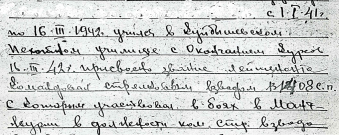 с 1.I.41г.
по 16.III.1942. учился в Куйбышевском
Пехотном училище с Окончанием Курса
16.III.42г. присвоено звание лейтенанта
Командовал стрелковым взводом в 1408 с.п.
с которым участвовал в боях в
в должности ком. стр. взвода